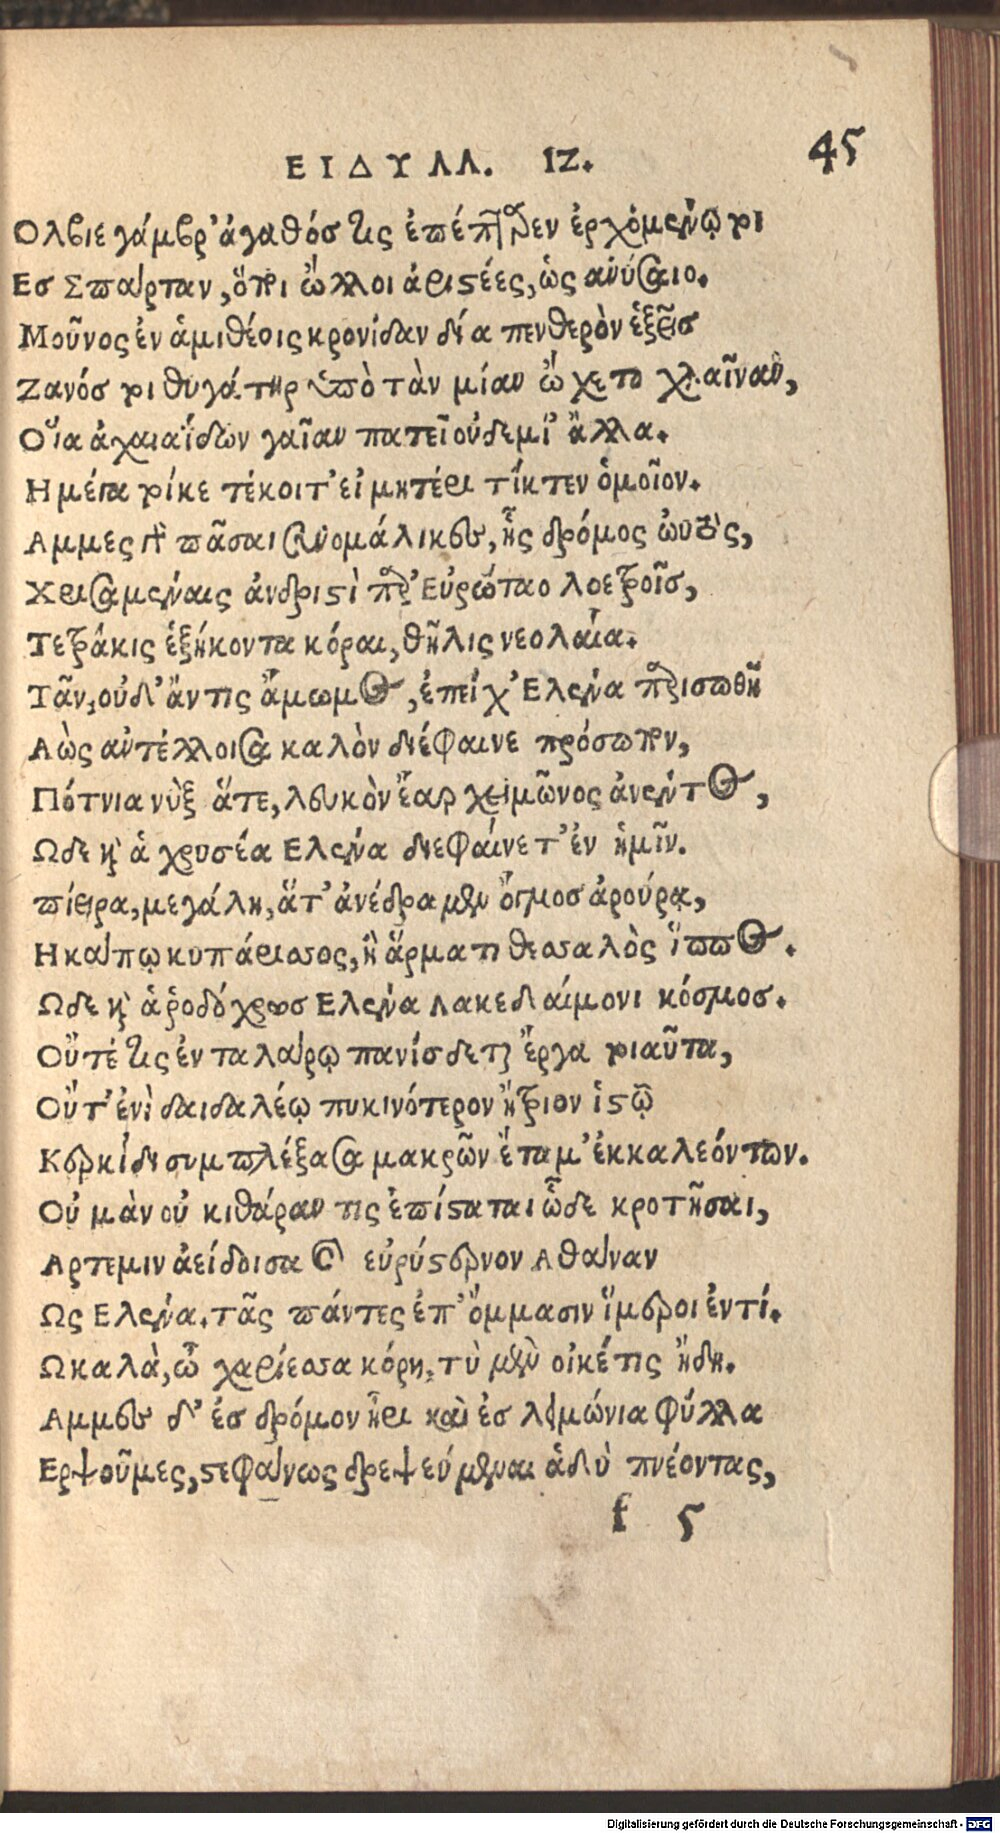 ΕΙΔΥΛΛ. ΙΖ. 45
Ολβιε γάμβρ' ἀγαθός τις ἐπέπταρεν ἐρχομένῳ τοι
Ες Σπάρταν, ὅποι ὦλλοι ἀριστέες, ὡς ἀνύσαιο.
Μοῦνος ἐν ἁμιθέοις κρονίδαν δία πενθερὸν ἑξεῖς
Ζανός τοι θυγάτηρ ὑπὸ τὰν μίαν ᾤχετο χλαῖναν,
Οἵα ἀχαιαΐδων γαῖαν πατεῖ οὐδεμί' ἄλλα.
Η μέγα τοί κε τέκοιτ' εἰ μητέρι τίκτεν ὁμοῖον.
Αμμες γδ πᾶσαι συνομάλικες, ᾗς δρόμος ωὑτὸς,
Χρισαμέναις ἀνδριστὶ παρ' Εὐρώταο λοετροῖς,
Τετράκις ἑξήκοντα κόραι, θῆλις νεολαία.
Τᾶν, οὐδ' ἄν τις ἄμωμος, ἐπεί χ' Ελένα παρισωθῆ
Αὼς ἀντέλλοισα καλὸν διέφαινε πρόσωπον,
Πότνια νὺξ ἅτε, λευκὸν ἔαρ χειμῶνος ἀνέντος,
Ωδε κὶ ἁ χρυσέα Ελένα διεφαίνετ' ἐν ἡμῖν.
πίειρα, μεγάλη, ἅτ' ἀνέδραμεν ὄγμος ἀρούρᾳ,
Η κάπῳ κυπάρισσος, ἢ ἅρματι θεσσαλὸς ἵππος.
Ωδε κὶ ἁ ῥοδόχρως Ελένα λακεδαίμονι κόσμος.
Οὔτέ τις ἐν ταλάρῳ πανίσδεται ἔργα τοιαῦτα,
Οὔτ' ἐνὶ δαιδαλέῳ πυκινότερον ἤτριον ἱστῷ
Κερκίδι συμπλέξασα μακρῶν ἔταμ' ἐκ καλεόντων.
Οὐ μὰν οὐ κιθάραν τις ἐπίσταται ὧδε κροτῆσαι,
Αρτεμιν ἀείδοισα καὶ εὐρύστερνον Αθάναν
Ως Ελένα. τᾶς πάντες ἐπ' ὄμμασιν ἵμεροι ἐντί.
Ω καλὰ, ὦ χαρίεσσα κόρη, τὺ μὲν οἰκέτις ἤδη.
Αμμες δ' ἐς δρόμον ἦρι καὶ ἐς λειμώνια φύλλα
Ερψοῦμες, στεφάνως δρεψεύμεναι ἁδὺ πνέοντας,
f 5
Digitalisierung gefördert durch die Deutsche Forschungsgemeinschaft - DFG